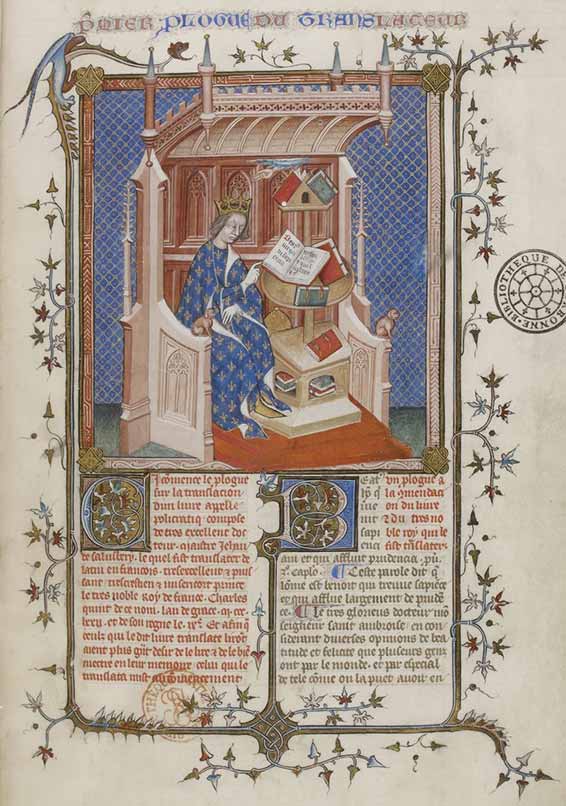 PMIER PLOGUE DU TRANSLATEUR
Beat
vir q
inven
sapi
encia
BIBLIOTHEQUE DE
Cy cōmence le plogue
sur la translation
dun livre appelle
policratiq compose
de tres excellent doc
teur maistre Jehan
de salisbery. le quel fist translater de
latin en francois tresexcellent & puis
sant
le tres noble Roy de france. Charles
quint de ce nom. lan de grace. m. ccc.
lxxij. et de son regne le. ixᵉ. Et afin q̄
ceulx qui le dit livre translate liront
aient plus gñt desir de le lire & de le biē
mettre en leur memoire celui qui le
translata mist au cōmencement
un plogue a
la cōmendaci
on du livre
& du tres no
ble roy qui le
fist trāslater
Beat
hō q̄
inve
nit
sapi
enc
am et qui affluit prudencia. pū.
iii. caplo. Ceste parole dit q̄
lōme est benoit qui treuve sapiēce
et qui afflue largement de prudē
ce. Le tres glorieus docteur mō
seignieur saint ambroise en con
siderant diverses opinions de bea
titude et felicite que pluseurs gens
ont par le monde. et par especial
de tele cōme on la puet avoir en